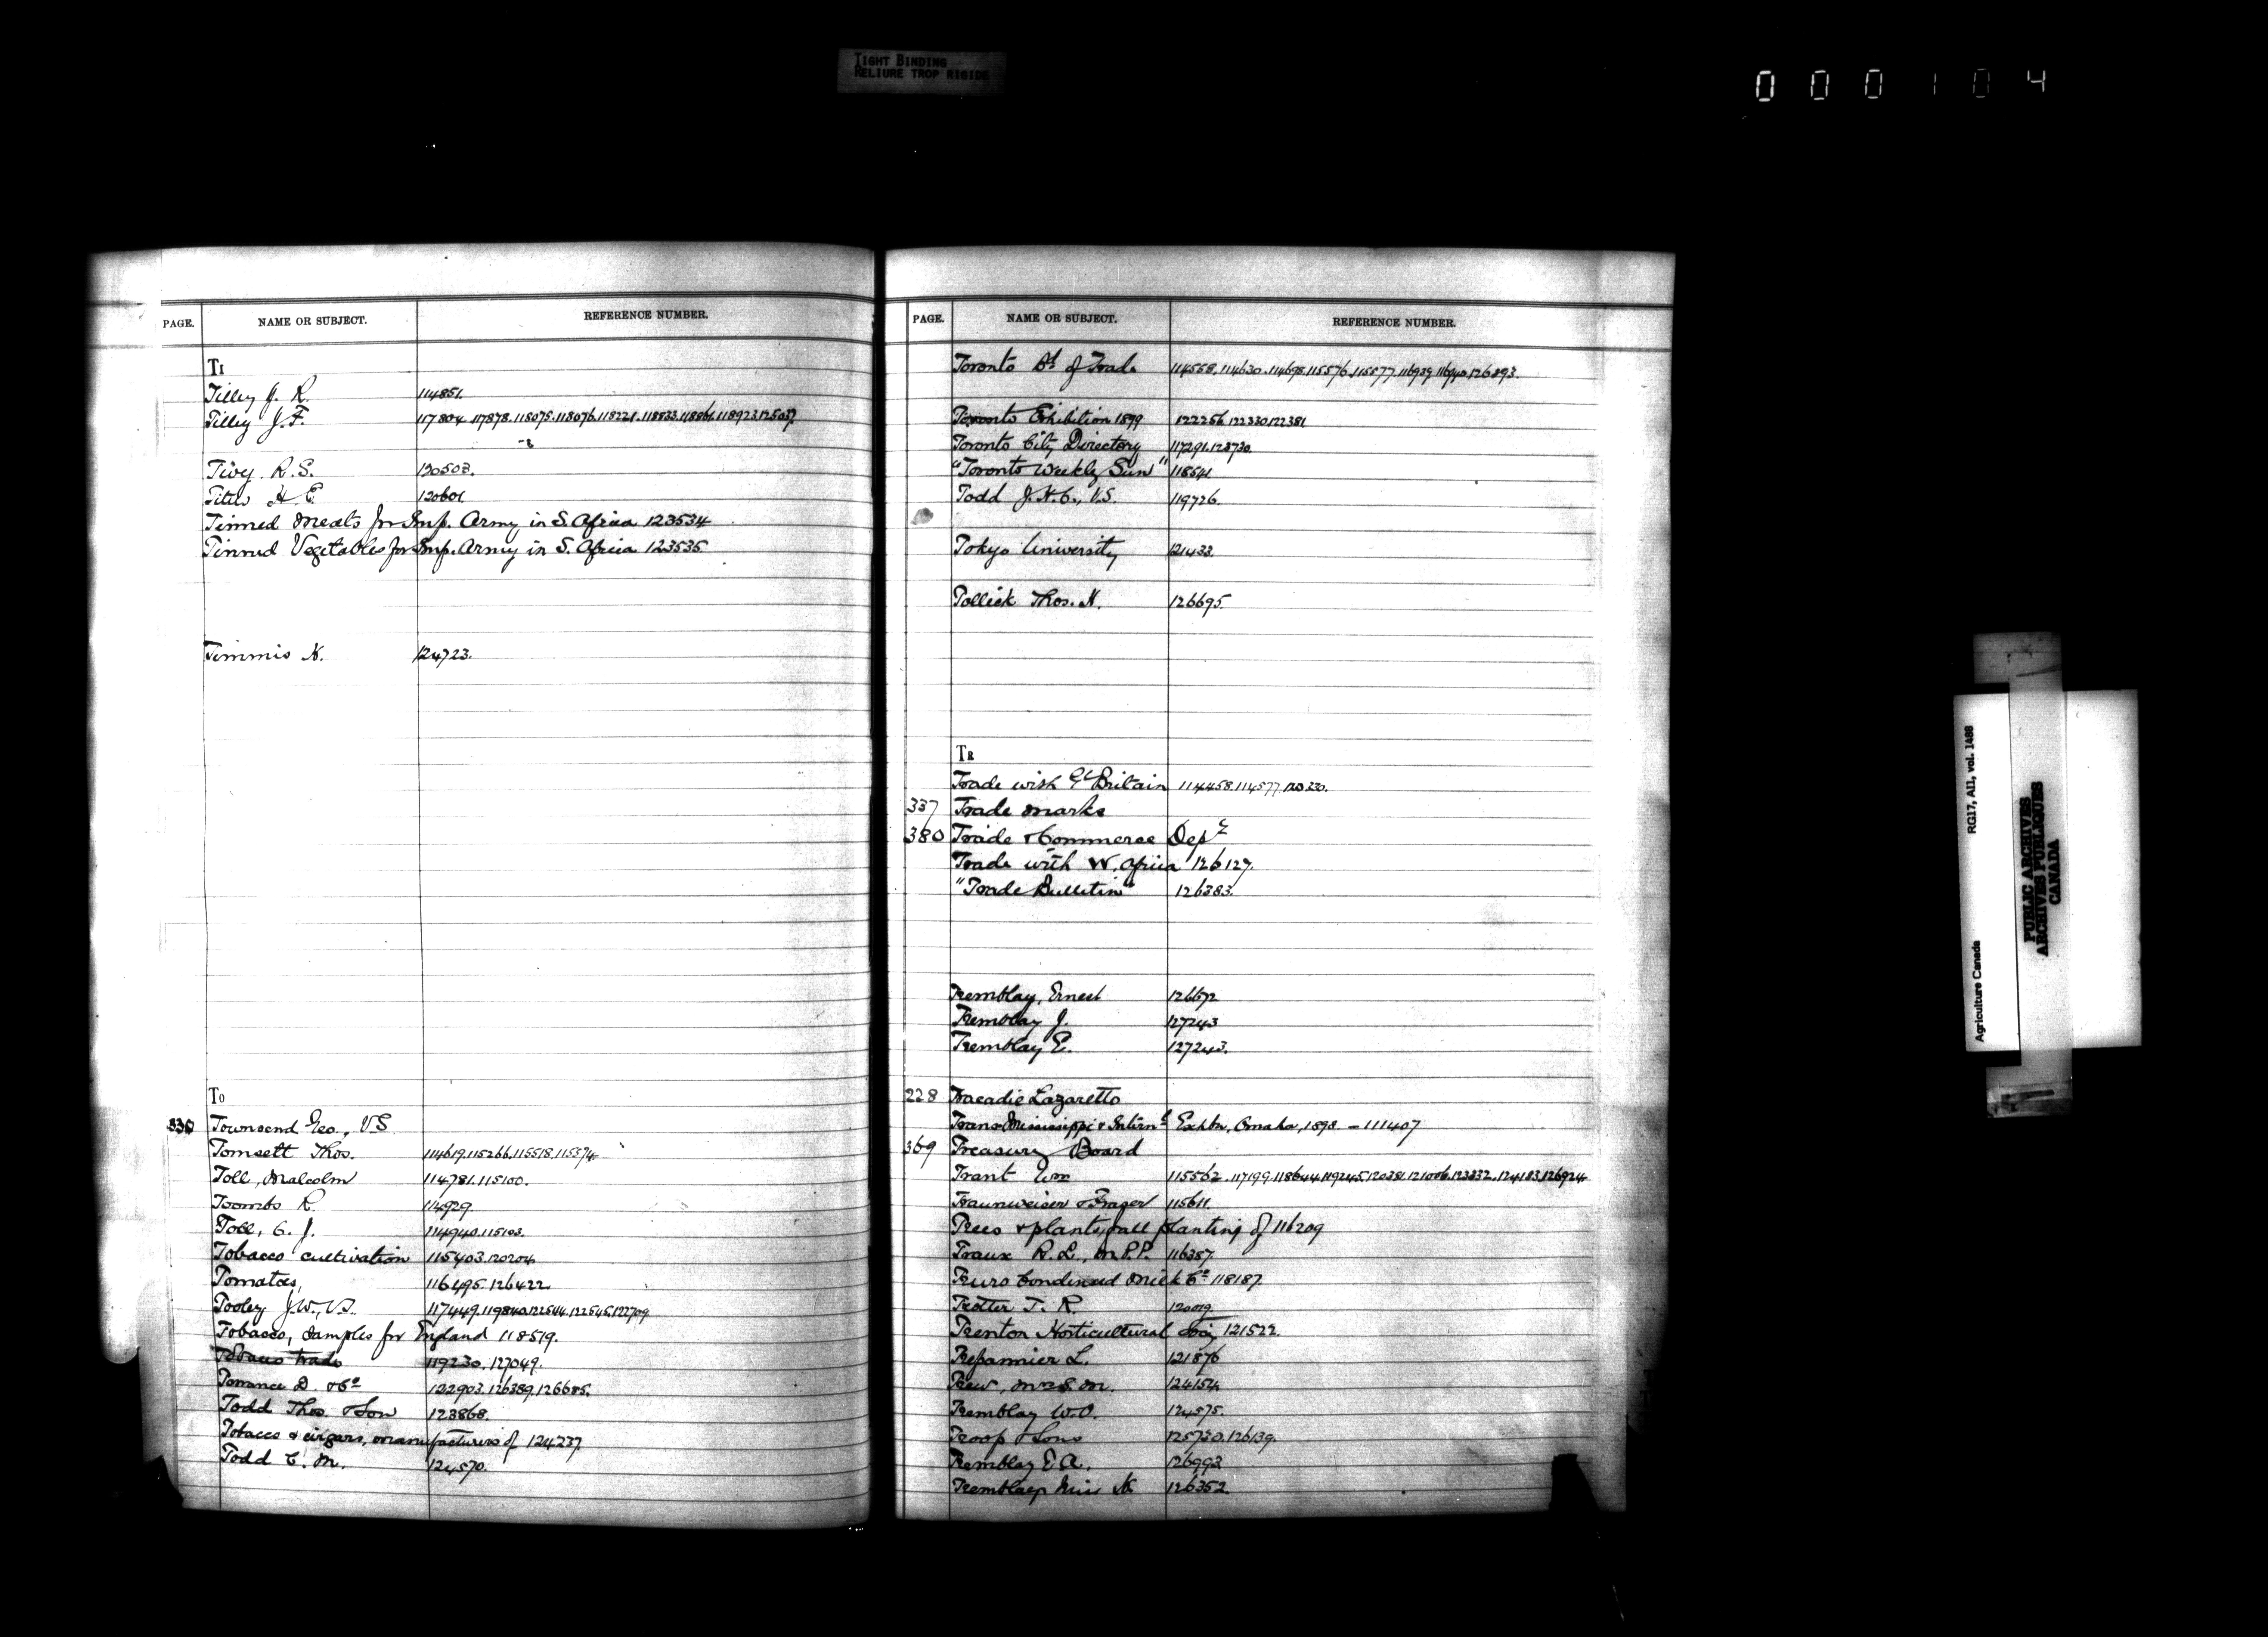 TIGHT BINDING
RELIURE TROP RIGIDE
000104
PAGE. NAME OR SUBJECT. REFERENCE NUMBER.
TI
Tilley J. R. 114851.
Tilley J. F. 117804.117878.118075.118076.118221.118833.118861.118923.125037.
Tivy. R. S. 120503.
Titus H. E. 120601
Tinned Meats for Imp. Army in S. Africa 123534
Tinned Vegetables for Imp. Army in S. Africa 123535
Timmis H. 124723.
TO
330 Townsend Geo., V.S.
Tomsett Thos. 114619.115266.115518.115374.
Toll, Malcolm 114781.115100.
Toombs R. 114929.
Toll, C. J. 114940.115103.
Tobacco cultivation 115403.120204
Tomatoes, 116495.126422
Tooley J.W., V.S. 117449.119840.122544.122545.122709
Tobacco, Samples for England 118519.
Tobacco trade 119230.127049.
Torrance D. & Co 122903.126389.126685.
Todd Thos. & Son 123868.
Tobacco & cigars, manufacturers of 124237
Todd C. M. 124570.
PAGE. NAME OR SUBJECT. REFERENCE NUMBER.
Toronto Bd of Trade 114558.114630.114698.115576.115577.116939.116940.126893.
Toronto Exhibition 1899 122256.122330.122381
Toronto City Directory 117291.123730.
"Toronto Weekly Sun" 118541.
Todd J. H. C., V.S. 119726.
Tokyo University 121433.
Tollick Thos. H. 126695.
TR
Trade with Gt Britain 114458.114577.120330.
337 Trade Marks
380 Trade & Commerce Dept
Trade with W. Africa 126127.
"Trade Bulletin" 126383.
Tremblay, Ernest 126672
Tremblay J. 127243
Tremblay E. 127243.
228 Tracadie Lazaretto
Trans Mississippi & Internl Exhbn, Omaha, 1898 - 111407
369 Treasury Board
Trant Wm 115562.117199.118644.119245.120381.121006.123832.124183.126924
Traunweiser & Frager 115611.
Trees & plants, fall planting of 116209
Traux R. E., M.P.P. 116387.
Truro Condensed Milk Co 118187.
Trotter T. R. 120019.
Trenton Horticultural Socy 121522.
Trepannier L. 121876
Trew, Mrs S. M. 124154
Tremblay W.O. 124575.
Troop & Sons 125720.126139.
Tremblay E. A. 126993
Tremblay Miss N. 126352.
Agriculture Canada RG17, AII, vol. 1488
PUBLIC ARCHIVES
ARCHIVES PUBLIQUES
CANADA